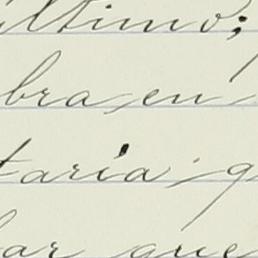 último;
bra en
taria q
ar que